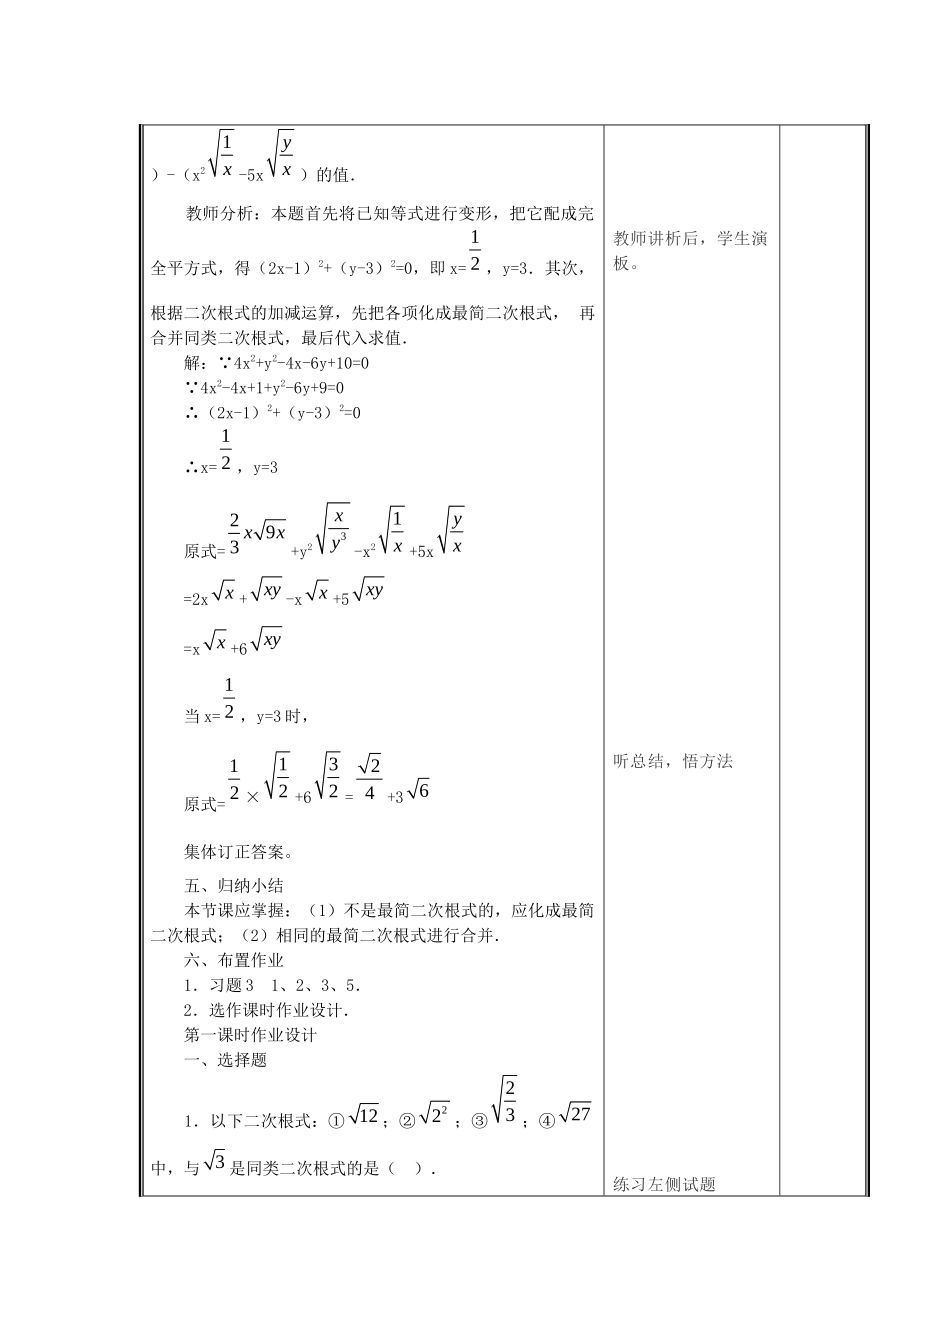 ）-（x²√(1/x) -5x√(y/x) ）的值．
教师分析：本题首先将已知等式进行变形，把它配成完
全平方式，得（2x-1）²+（y-3）²=0，即 x=1/2 ，y=3．其次，
根据二次根式的加减运算，先把各项化成最简二次根式， 再
合并同类二次根式，最后代入求值．
解：∵4x²+y²-4x-6y+10=0
∵4x²-4x+1+y²-6y+9=0
∴（2x-1）²+（y-3）²=0
∴x=1/2 ，y=3
原式=2/3 x√9x +y²√(x/y³) -x²√(1/x) +5x√(y/x)
=2x√x +√xy -x√x +5√xy
=x√x +6√xy
当 x=1/2 ，y=3 时，
原式=1/2 ×√(1/2) +6√(3/2) =√2/4 +3√6
集体订正答案。
五、归纳小结
本节课应掌握：（1）不是最简二次根式的，应化成最简
二次根式；（2）相同的最简二次根式进行合并．
六、布置作业
1．习题 3 1、2、3、5．
2．选作课时作业设计．
第一课时作业设计
一、选择题
1．以下二次根式：①√12；②√2²；③√(2/3)；④√27
中，与√3是同类二次根式的是（ ）．
教师讲析后，学生演
板。
听总结，悟方法
练习左侧试题